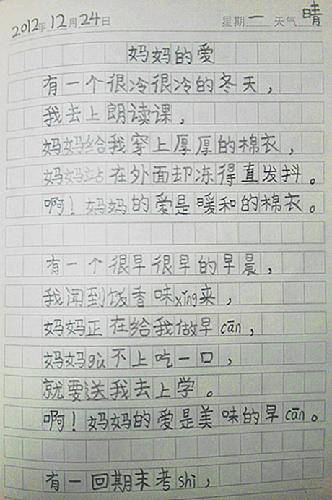 2012年12月24日 星期一 天气晴
妈妈的爱
有一个很冷很冷的冬天，
我去上朗读课，
妈妈给我穿上厚厚的棉衣，
妈妈站在外面却冻得直发抖。
啊！妈妈的爱是暖和的棉衣。
有一个很早很早的早晨，
我闻到饭香味xǐng来，
妈妈正在给我做早cān，
妈妈顾不上吃一口，
就要送我去上学。
啊！妈妈的爱是美味的早cān。
有一回期末考shì，